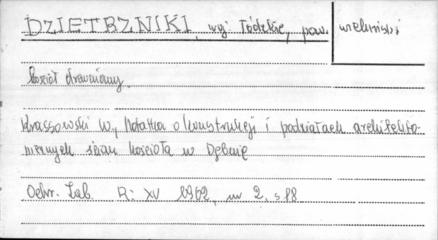 DZIETRZNIKI, woj. łódzkie, pow. wieluński
kościół drewniany.
Krassowski W., Notatka o konstrukcji i podziałach architekto-
nicznych ścian kościoła w Dębnie
Ochr. Zab. R: XV 1962, nr 2, s 88